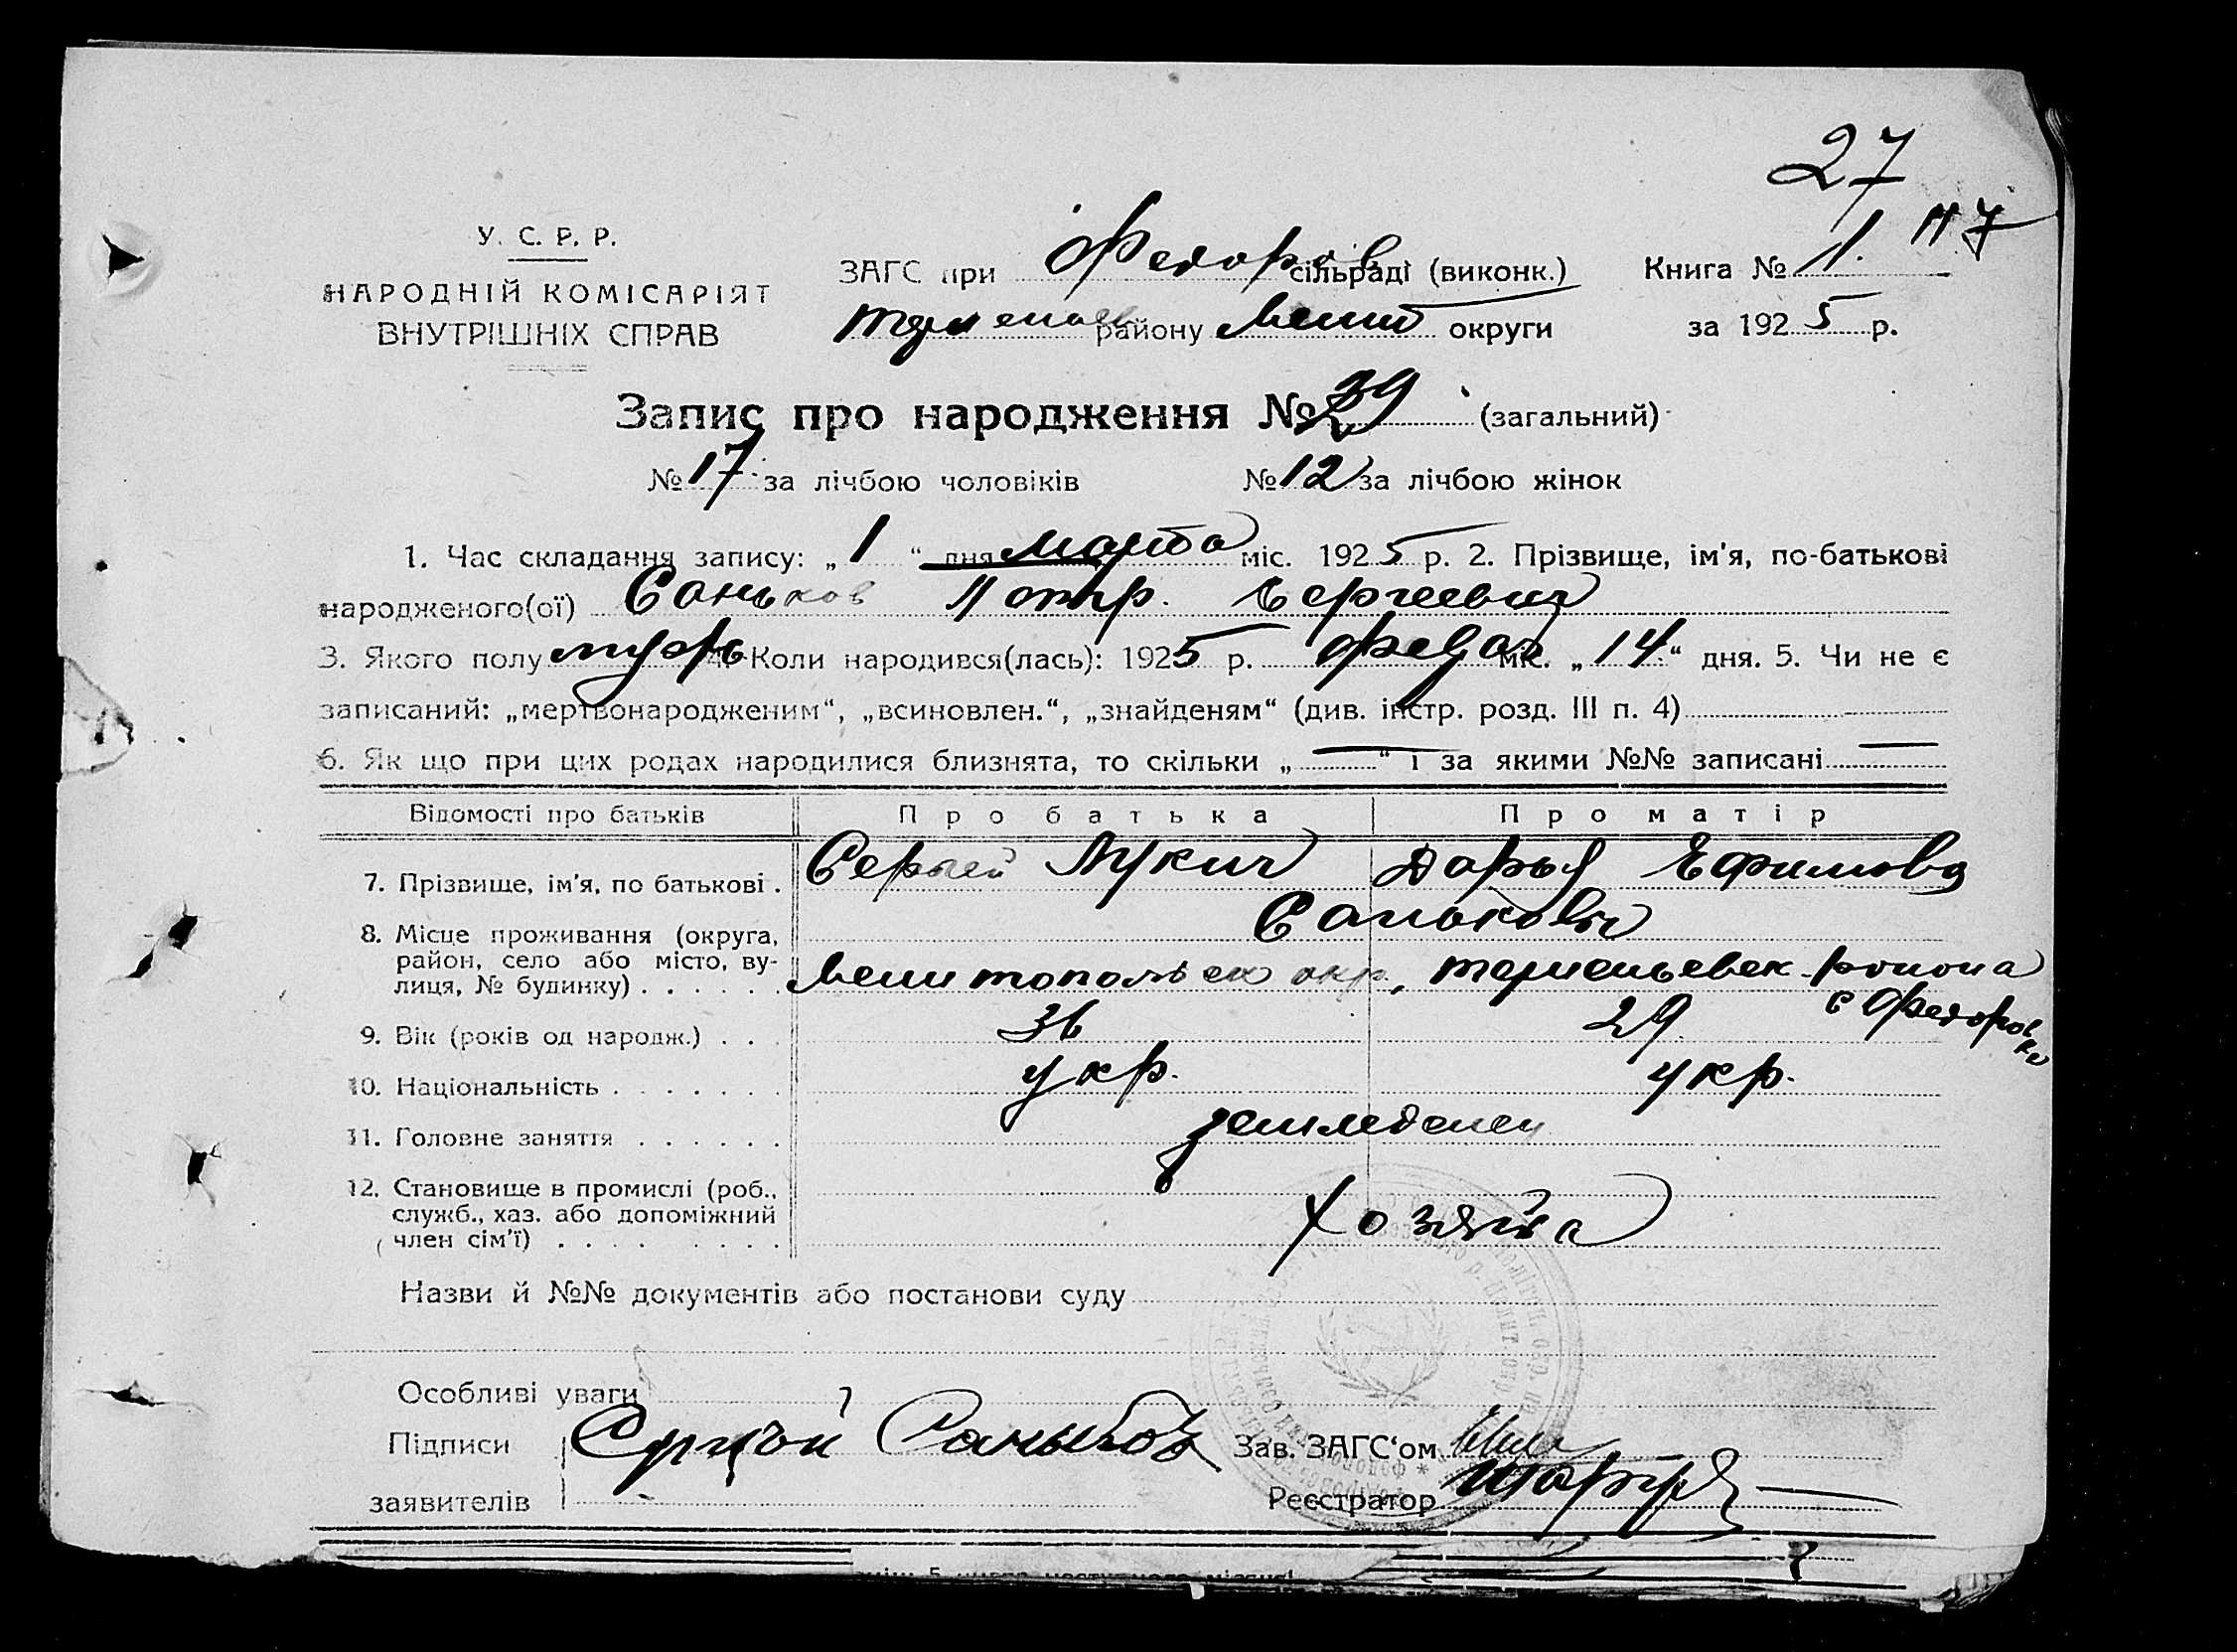 27
У. С. Р. Р.
НАРОДНІЙ КОМІСАРІЯТ
ВНУТРІШНІХ СПРАВ
ЗАГС при Федоров сільраді (виконк.)
району Мелит округи
Книга № 1. 117
за 1925 р.
Запис про народження № 29 (загальний)
№ 17 за лічбою чоловіків № 12 за лічбою жінок
1. Час складання запису: „1“ дня Марта міс. 1925 р. 2. Прізвище, ім'я, по-батькові
народженого(ої) Саньков Петр. Сергеевич
3. Якого полу муж 4. Коли народився(лась): 1925 р. февраля міс. „14“ дня. 5. Чи не є
записаний: „мертвонародженим“, „всиновлен.“, „знайденям“ (див. інстр. розд. III п. 4)
6. Як що при цих родах народилися близнята, то скільки „—“ і за якими №№ записані —
Відомості про батьків Про батька Про матір
7. Прізвище, ім'я, по батькові . Сергей Лукич Дарья Ефимовна
Саньковы
8. Місце проживання (округа,
район, село або місто, ву-
лиця, № будинку) . . . . . . Мелитопольск окр., района
с Федоровка
9. Вік (років од народж.) . . . 36 29
10. Національність . . . . . . . укр. укр.
11. Головне заняття . . . . . . земледелец
12. Становище в промислі (роб.,
служб., хаз. або допоміжний
член сім'ї) . . . . . . . . хозяева
Назви й №№ документів або постанови суду
Особливі уваги
Підписи Сергей Саньков Зав. ЗАГС‘ом
заявителів Реєстратор